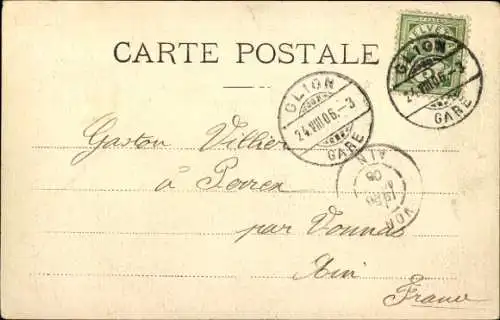 HELVETIA
CARTE POSTALE
GLION
24.VIII.06.-3
GARE
GLION
24.VIII.06.-3
GARE
Gaston Villier
à Perrex
par Vonnas
Ain
France
AIN
06